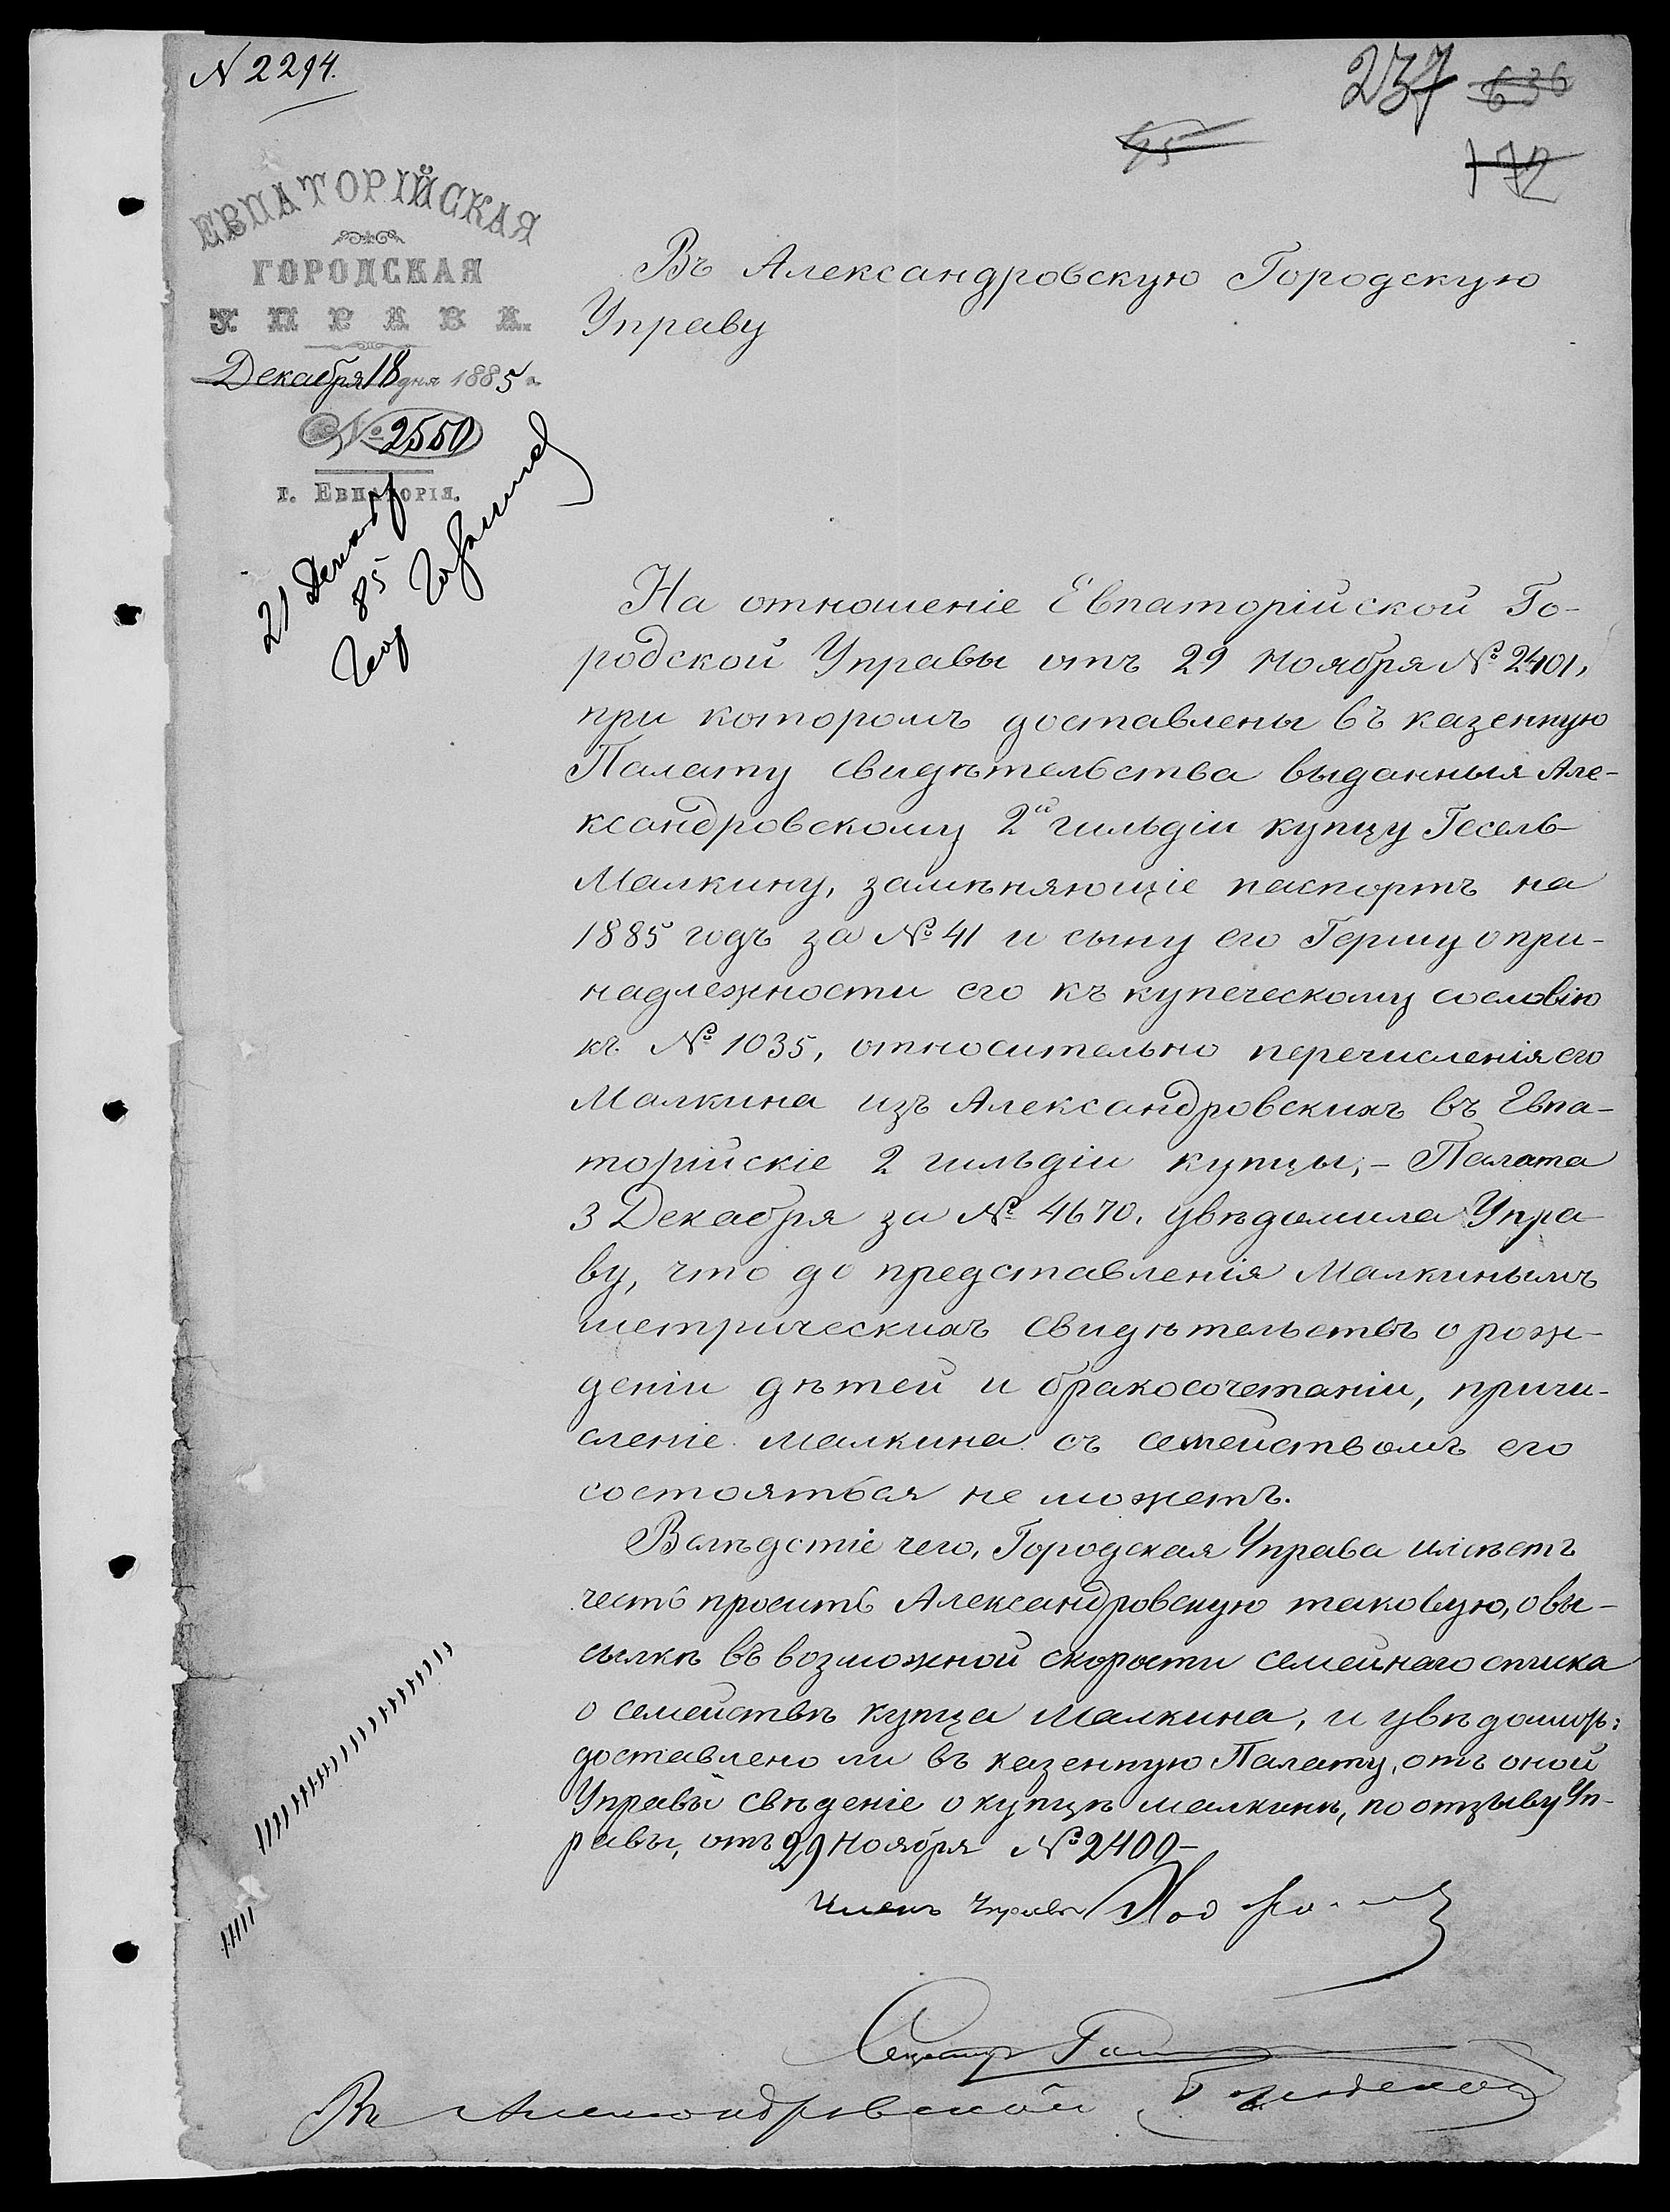 N 2294.
237 636
45
172
ЕВПАТОРІЙСКАЯ
ГОРОДСКАЯ
УПРАВА.
Декабря 18 дня 1885 г.
№ 2550
г. Евпаторія.
21 Декаб
85
Въ Александровскую Городскую
Управу
На отношеніе Евпаторійской Го-
родской Управы отъ 29 Ноября № 2401,
при которомъ доставлены въ казенную
Палату свидѣтельства выданныя Але-
ксандровскому 2й гильдіи купцу Гесель
Малкину, замѣняющіе паспортъ на
1885 годъ за № 41 и сыну его Гершу о при-
надлежности его къ купеческому сословію
къ № 1035, относительно перечисленія его
Малкина изъ Александровскихъ въ Евпа-
торійскіе 2 гильдіи купцы, - Палата
3 Декабря за № 4670, увѣдомила Упра-
ву, что до представленія Малкинымъ
метрическихъ свидѣтельствъ о рож-
деніи дѣтей и бракосочетаніи, причи-
сленіе Малкина съ семействомъ его
состояться не можетъ.
Вслѣдстіе чего, Городская Управа имѣетъ
честь просить Александровскую таковую, о вы-
сылкѣ въ возможной скорости семейнаго списка
о семействѣ купца Малкина, и увѣдомить:
доставлено ли въ казенную Палату, отъ оной
Управы свѣденіе о купцѣ Малкинѣ, по отзыву Уп-
равы, отъ 29 Ноября № 2400-
Членъ Управы
Секретарь
Въ Александровской Городской